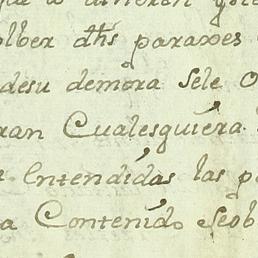 olber dhs paraxes
desu demora Sele O
ran Cualesquiéra
Entendidas las p
a Contenido Seob